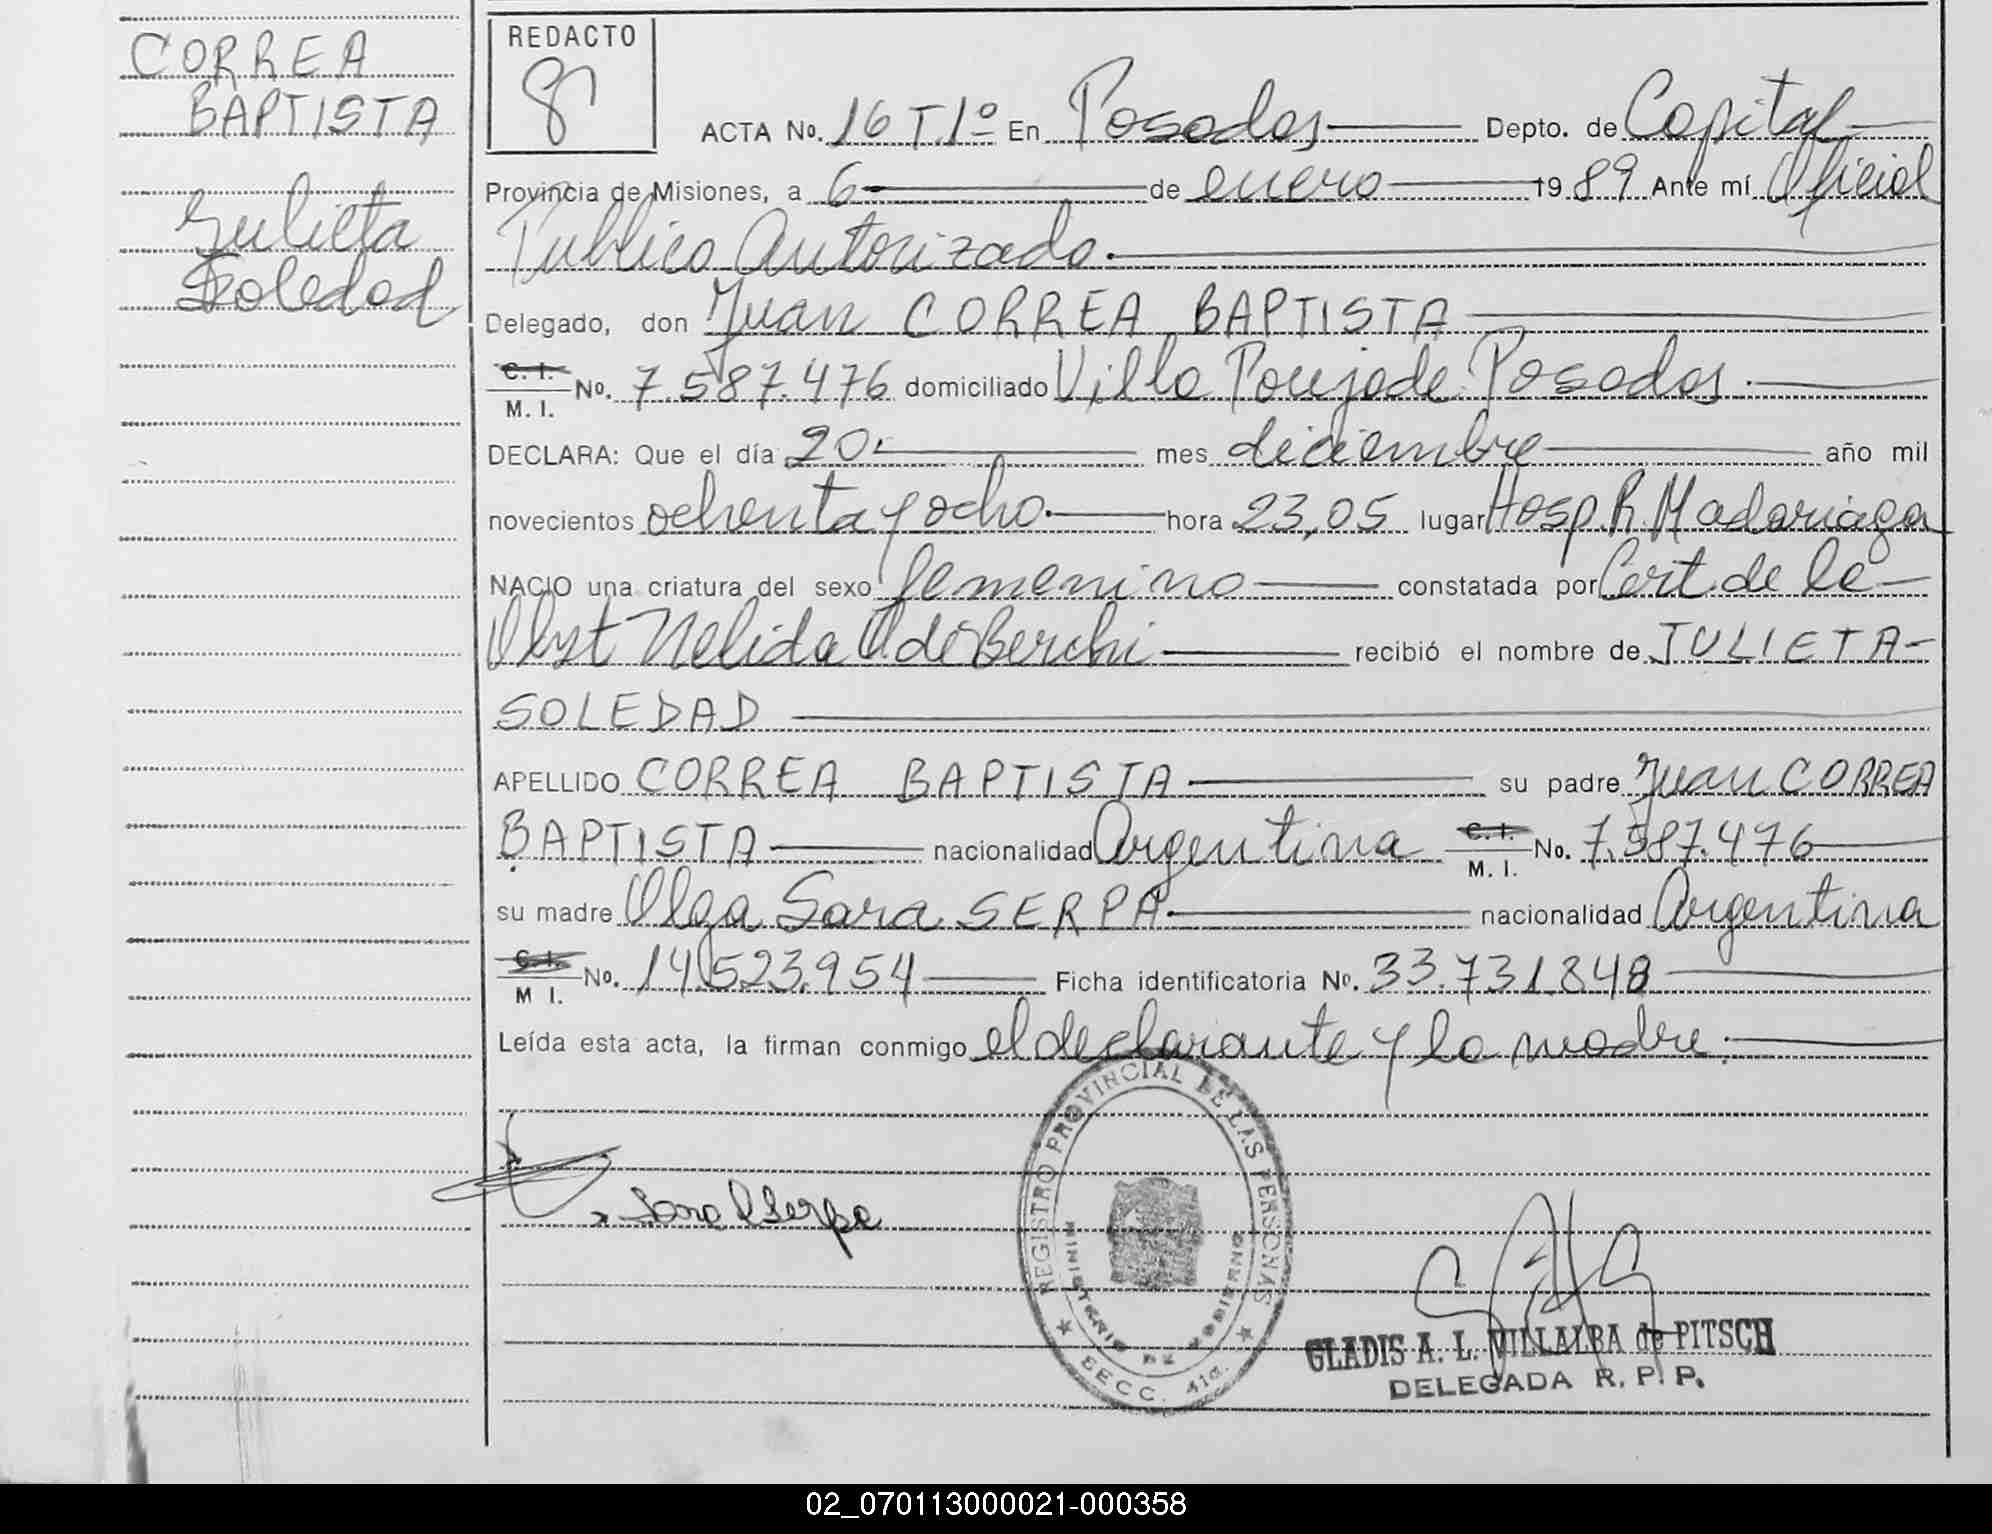 CORREA
BAPTISTA
Julieta
Soledad
REDACTO
ACTA No. 16 T. 1º En Posadas Depto. de Capital
Provincia de Misiones, a 6 de enero 1989 Ante mí Oficial
Publico Autorizado.
Delegado, don Juan CORREA BAPTISTA
C. I. M. I. No. 7.587.476 domiciliado Villa Poujade. Posadas.
DECLARA: Que el día 20. mes diciembre año mil
novecientos ochenta y ocho. hora 23,05 lugar Hosp. R. Madariaga
NACIO una criatura del sexo femenino constatada por Cert. de la
Obst Nelida O. de Berchi recibió el nombre de JULIETA-
SOLEDAD
APELLIDO CORREA BAPTISTA su padre Juan CORREA
BAPTISTA nacionalidad Argentina C. I. M. I. No. 7.587.476
su madre Olga Sara SERPA nacionalidad Argentina
C. I. M I. No. 14.523.954 Ficha identificatoria No. 33.731.848
Leída esta acta, la firman conmigo el declarante y la madre.
Sara O Serpa
REGISTRO PROVINCIAL DE LAS PERSONAS
MINISTERIO DE GOBIERNO
SECC. 41a.
GLADIS A. L. VILLALBA de PITSCH
DELEGADA R. P. P.
02_070113000021-000358